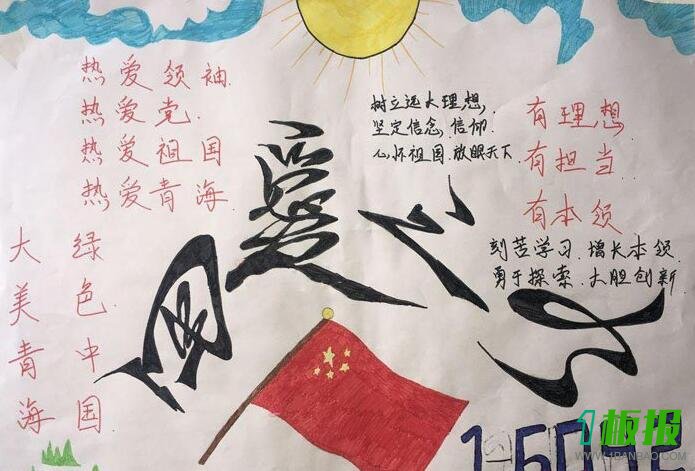 热爱领袖.
热爱党.
热爱祖国
热爱青海.
树立远大理想,
坚定信念.信仰.
心怀祖国.放眼天下.
有理想
有担当.
有本领
刻苦学习.增长本领.
勇于探索.大胆创新
绿色中国
大美青海
爱国
1板报
WWW.1BANBAO.COM